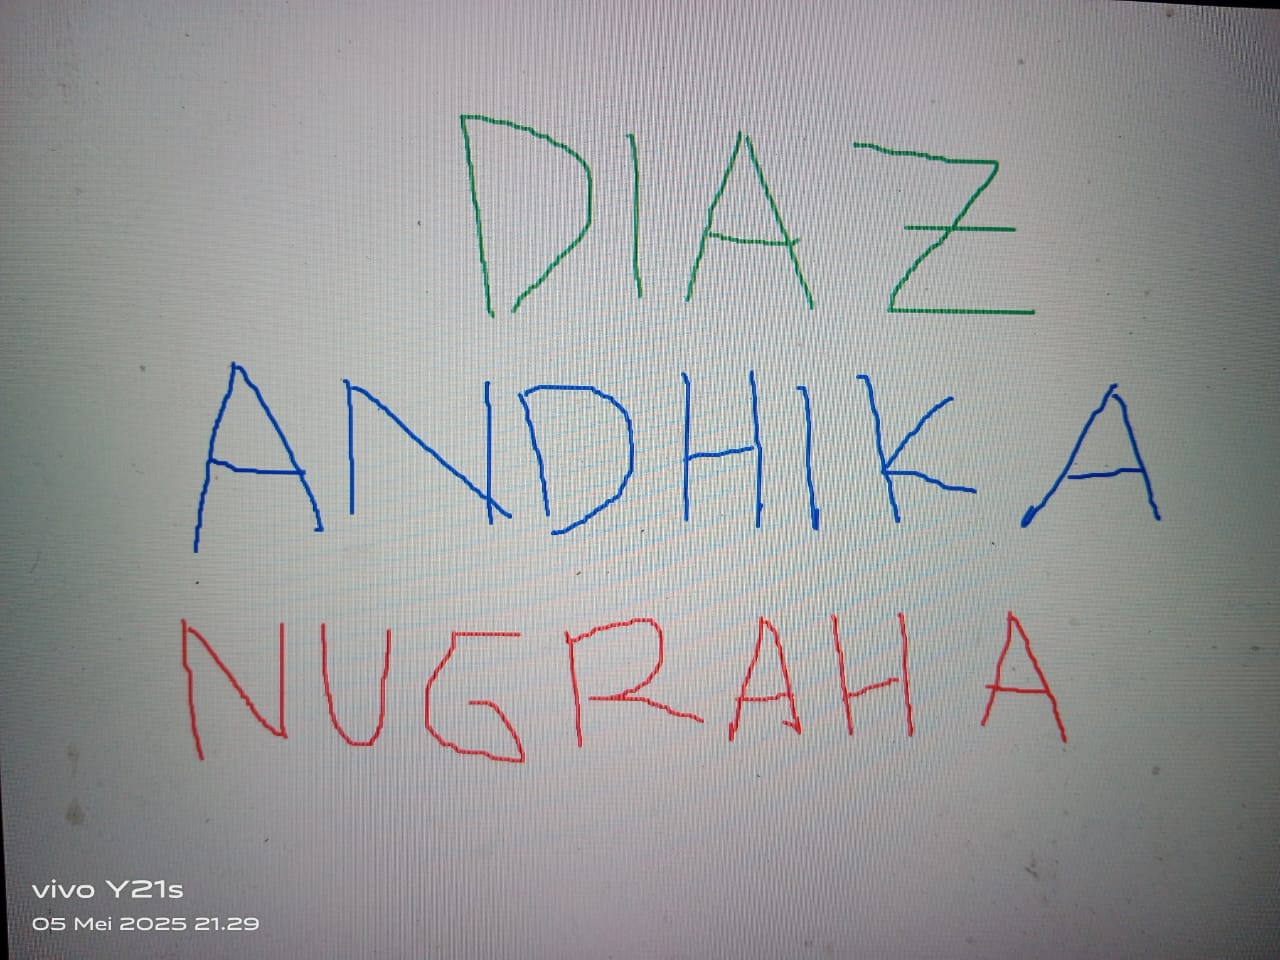 DIAZ
ANDHIKA
NUGRAHA
vivo Y21s
05 Mei 2025 21.29